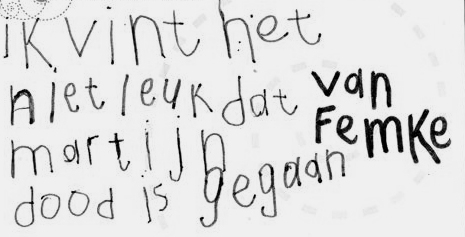 ik vint het
niet leuk dat
martijn
dood is gegaan
van
Femke